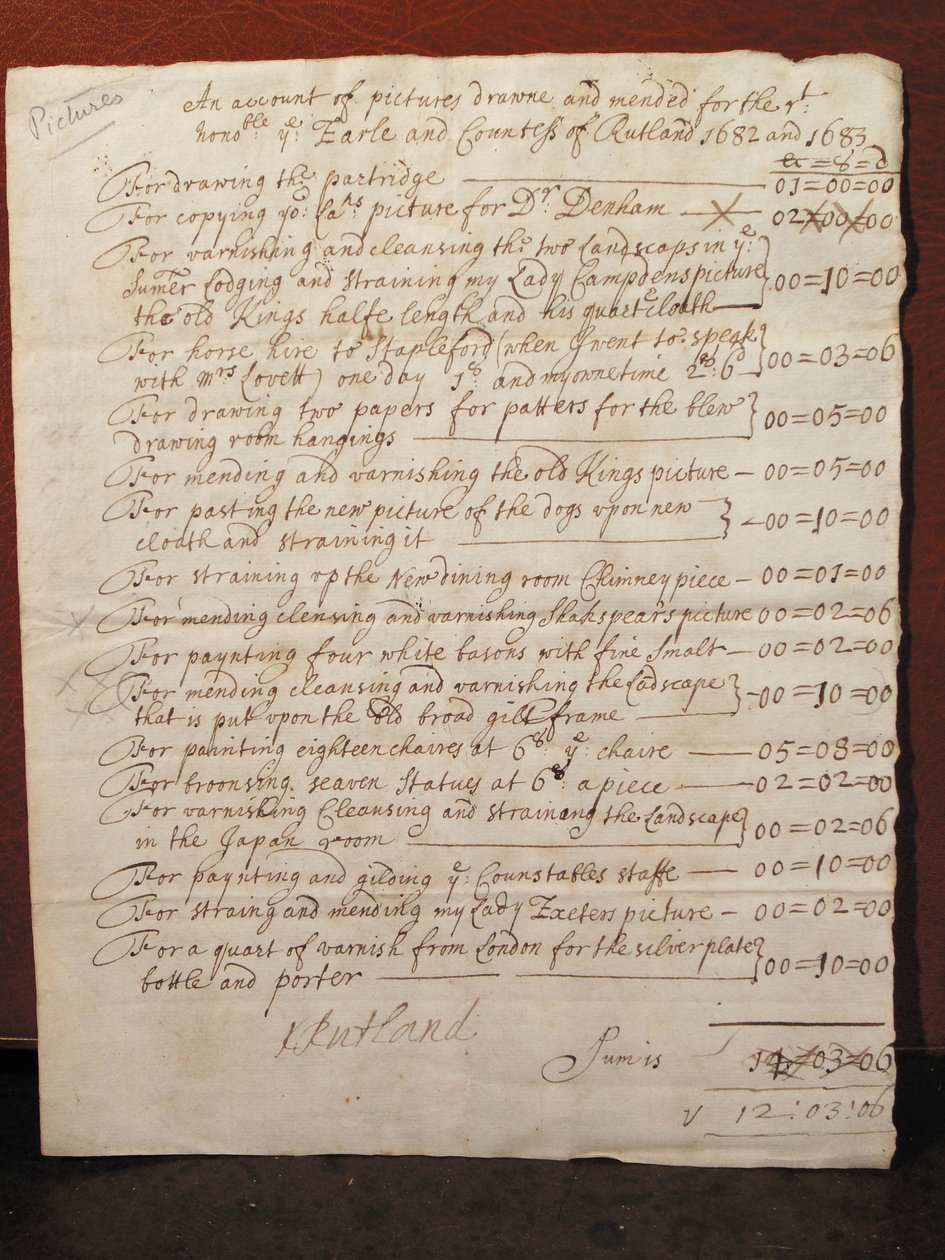 Pictures
An account of pictures drawne and mended for the rt:
honoble ye: Earle and Countess of Rutland 1682 and 1683
li = s = d
For drawing the partridge 01=00=00
For copying yor: Lapps picture for Dr. Denham X 02=00=00
For varnishing and cleansing the two Landscaps in ye:
Sumer Lodging and straining my Lady Campdens picture 00=10=00
the old Kings halfe length and his quarter cloath
For horse hire to Stapleford (when I went to speak
with Mrs Lovett) one day 1s and my owne time 2s: 6d 00=03=06
For drawing two papers for patters for the blew
drawing room hangings 00=05=00
For mending and varnishing the old Kings picture – 00=05=00
For pasting the new picture of the dogs upon new
cloath and straining it 00=10=00
For straining up the New dining room Chimney piece – 00=01=00
For mending clensing and varnishing Shakspears picture 00=02=06
For paynting four white basons with fine Smalt – 00=02=00
For mending cleansing and varnishing the Ladscape
that is put upon the old broad gilt frame 00=10=00
For painting eighteen chaires at 6s ye: chaire 05=08=00
For broonsing seaven Statues at 6s a piece 02=02=00
For varnishing Cleansing and straineng the Landscape
in the Japan room 00=02=06
For paynting and gilding ye: Counstables staffe 00=10=00
For straing and mending my Lady Exeters picture – 00=02=00
For a quart of varnish from London for the silver plate
bottle and porter 00=10=00
JRutland
Sum is 14=03=06
12:03:06